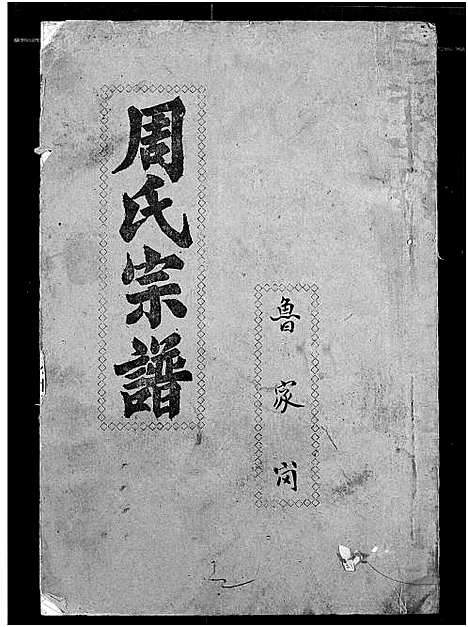 周氏宗譜
魯家岗